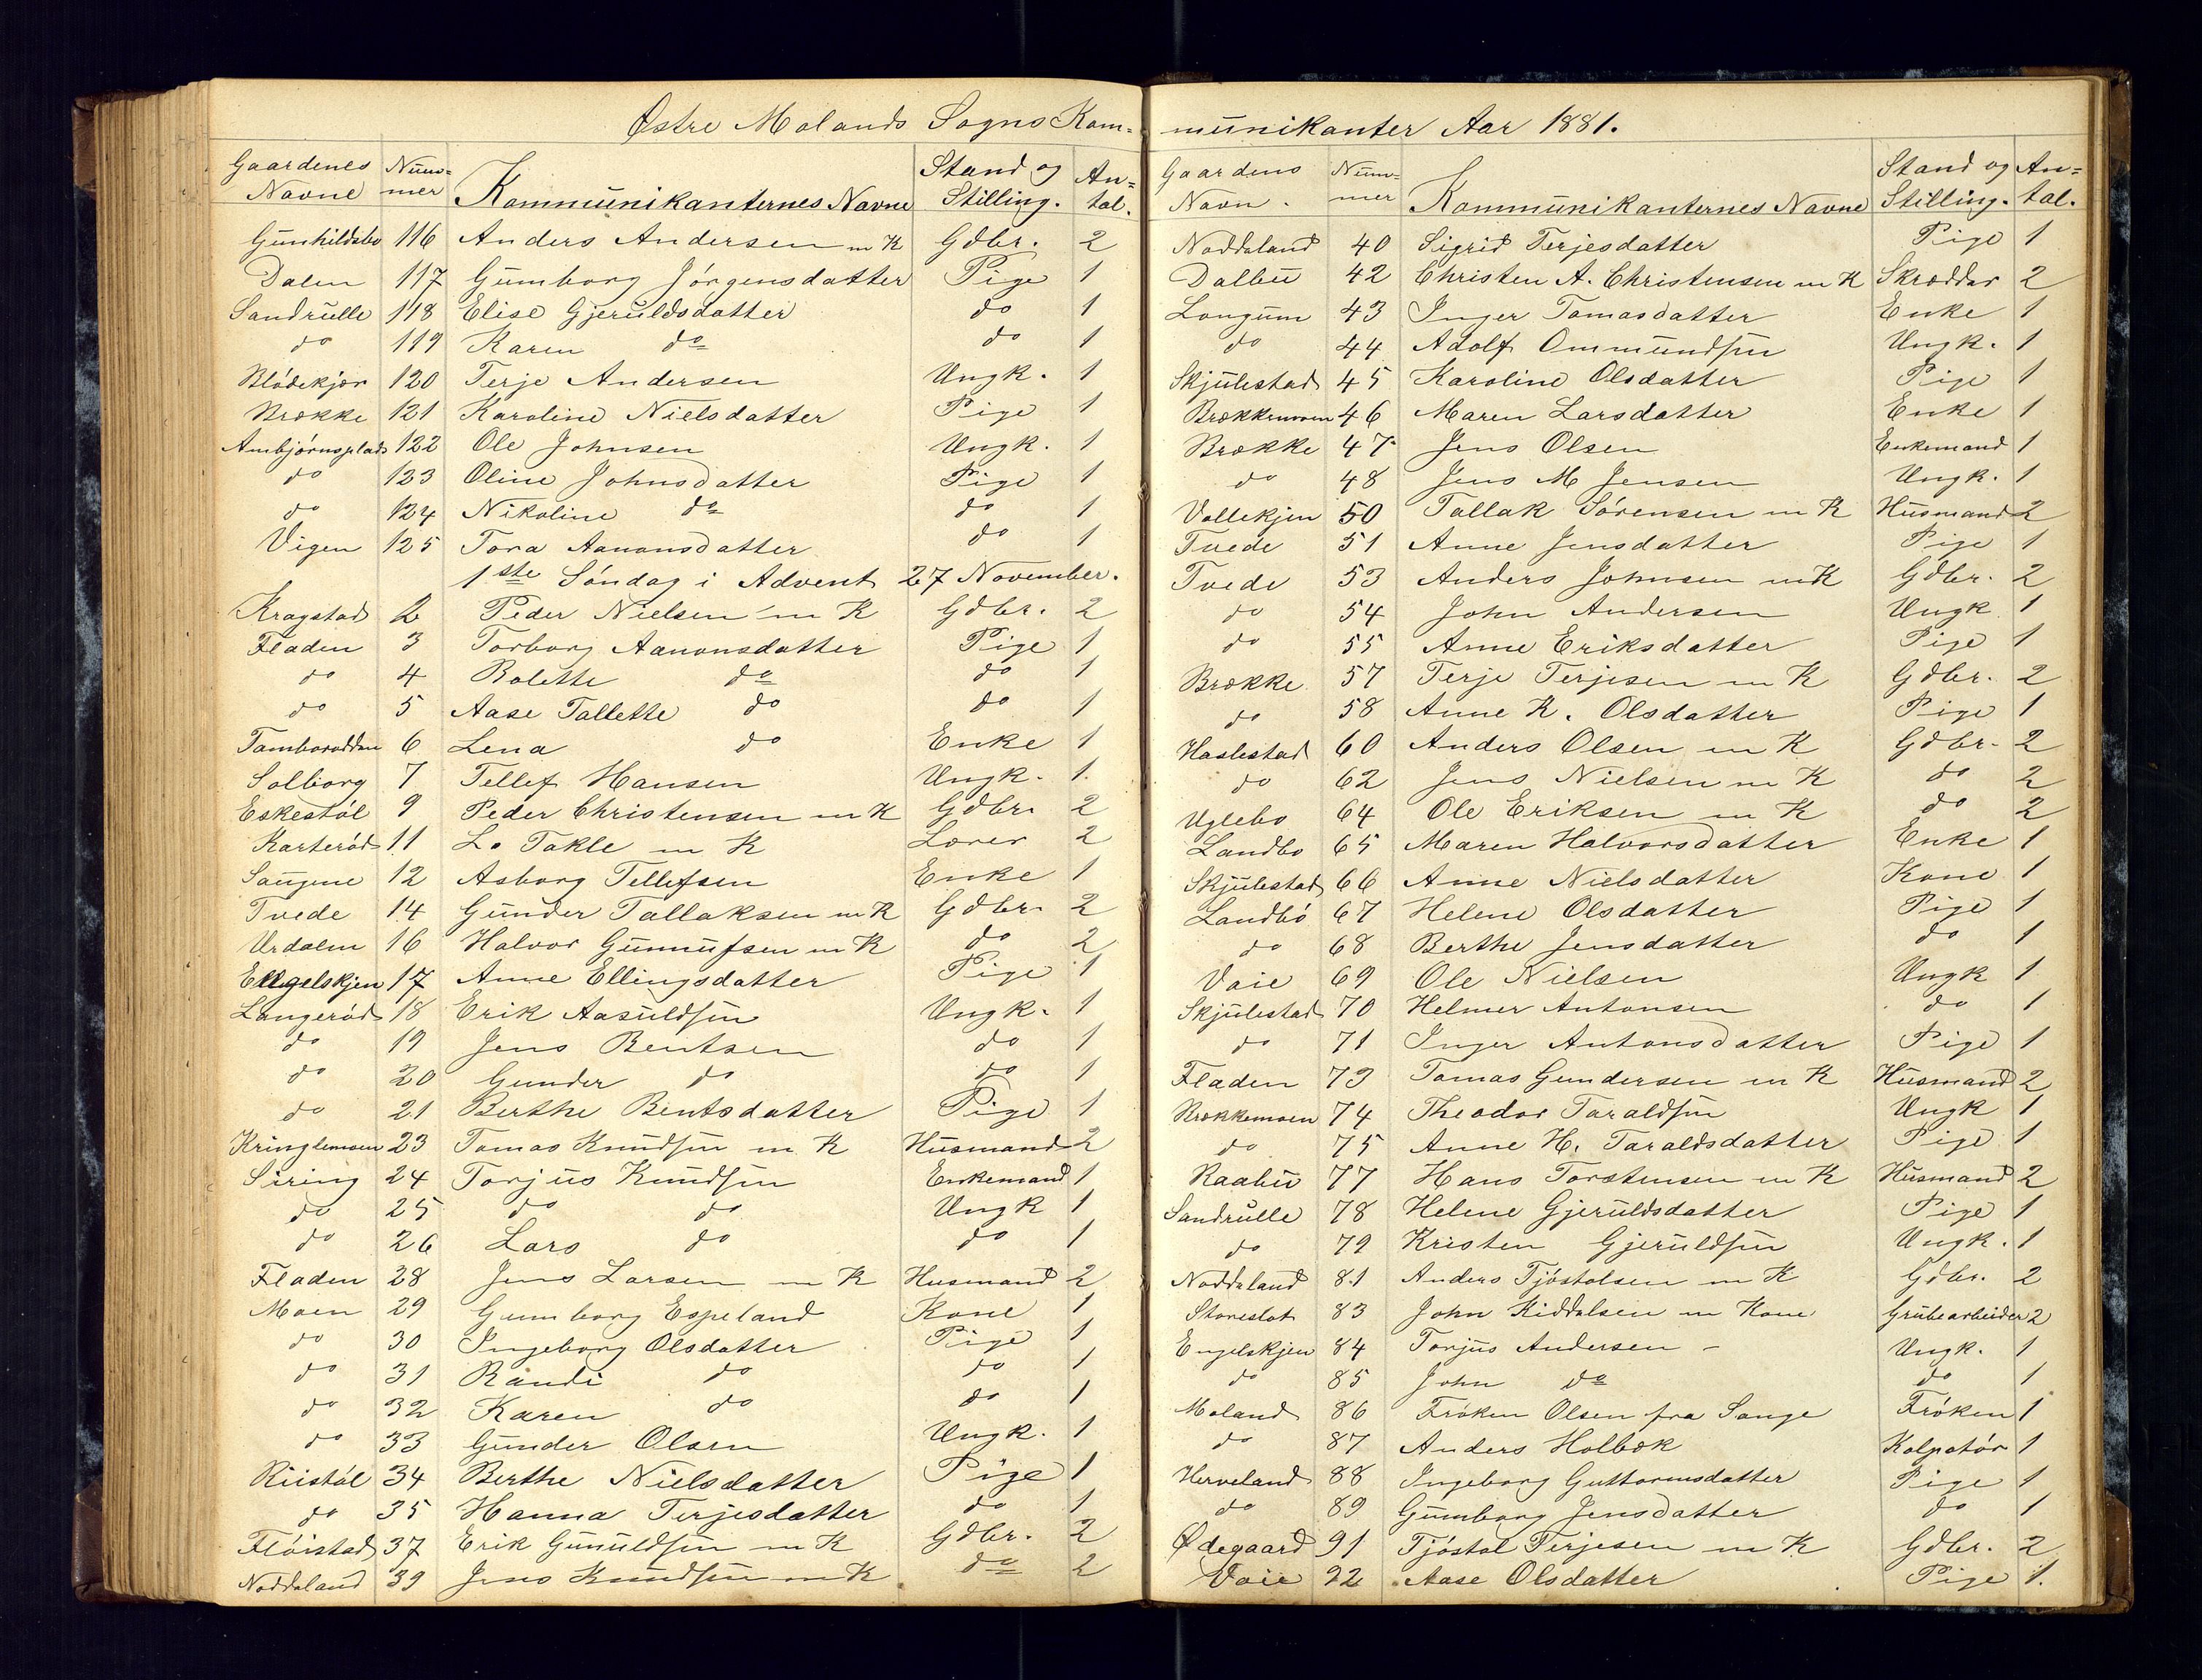 Østre Molands Sogns Kom-
Gaardenes Navne Num-mer Kommunikanternes Navne Stand og Stilling. An-tal.
Gunhildsbo 116 Anders Andersen m K Gdbr. 2
Dalen 117 Gumborg Jørgensdatter Pige 1
Sandrulle 118 Elise Gjeruldsdatter do 1
do 119 Karen do do 1
Blødekjær 120 Terje Andersen Ungk. 1
Brække 121 Karoline Nielsdatter Pige 1
Ambjørnsplads 122 Ole Johnsen Ungk. 1
do 123 Oline Johnsdatter Pige 1
do 124 Nikoline do do 1
Vigen 125 Tora Aanonsdatter do 1
1ste Søndag i Advent 27 November.
Kragstad 2 Peder Nielsen m K Gdbr. 2
Fladen 3 Torborg Aanonsdatter Pige 1
do 4 Bolette do do 1
do 5 Aase Tallette do do 1
Tamborodden 6 Lena do Enke 1
Solborg 7 Tellef Hansen Ungk. 1.
Eskestøl 9 Peder Christensen m K Gdbr. 2
Karterød 11 L. Takle m K Lærer 2
Saugene 12 Asborg Tellefsen Enke 1
Tvede 14 Gunder Tallaksen m K Gdbr. 2
Urdalen 16 Halvor Gunnufsen m K do 2
Engelskjen 17 Anne Ellingsdatter Pige 1
Langerød 18 Erik Aasuldsen Ungk. 1
do 19 Jens Bentsen do 1
do 20 Gunder do do 1
do 21 Berthe Bentsdatter Pige 1
Kringlemoen 23 Tomas Knudsen m K Husmand 2
Siring 24 Torjus Knudsen Enkemand 1
do 25 do do Ungk 1
do 26 Lars do do 1
Fladen 28 Jens Larsen m K Husmand 2
Moen 29 Gumborg Espeland Kone 1
do 30 Ingeborg Olsdatter Pige 1
do 31 Randi do do 1
do 32 Karen do do 1
do 33 Gunder Olsen Ungk. 1
Riistøl 34 Berthe Nielsdatter Pige 1
do 35 Hanna Terjesdatter do 1
Fløistad 37 Erik Gunuldsen m K Gdbr. 2
Noddeland 39 Jens Knudsen m K do 2
munikanter Aar 1881.
Gaardens Navn. Num-mer Kommunikanternes Navne Stand og Stilling. An-tal.
Noddeland 40 Sigrid Terjesdatter Pige 1
Dalbu 42 Christen A. Christensen m K Skrædder 2
Longum 43 Inger Tomasdatter Enke 1
do 44 Adolf Ommundsen Ungk. 1
Skjulestad 45 Karoline Olsdatter Pige 1
Brækkemoen 46 Maren Larsdatter Enke 1
Brække 47 Jens Olsen Enkemand 1
do 48 Jens M Jensen Ungk. 1
Vollekjen 50 Tallak Sørensen m K Husmand 2
Tvede 51 Anne Jensdatter Pige 1
Tvede 53 Anders Johnsen m K Gdbr. 2
do 54 John Andersen Ungk 1
do 55 Anne Eriksdatter Pige 1
Brække 57 Terje Terjesen m K Gdbr. 2
do 58 Anne K. Olsdatter Pige 1
Haslestad 60 Anders Olsen m K Gdbr. 2
do 62 Jens Nielsen m K do 2
Uglebo 64 Ole Eriksen m K do 2
Landbo 65 Maren Halvorsdatter Enke 1
Skjulestad 66 Anne Nielsdatter Kone 1
Landbø 67 Helene Olsdatter Pige 1
do 68 Berthe Jensdatter do 1
Vaie 69 Ole Nielsen Ungk 1
Skjulestad 70 Helmer Antonsen do 1
do 71 Inger Antonsdatter Pige 1
Fladen 73 Tomas Gundersen m K Husmand 2
Brækkemoen 74 Theodor Taraldsen Ungk 1
do 75 Anne H. Taraldsdatter Pige 1
Raabu 77 Hans Torstensen m K Husmand 2
Sandrulle 78 Helene Gjeruldsdatter Pige 1
do 79 Kristen Gjeruldsen Ungk. 1
Noddeland 81 Anders Tjøstolsen m K Gdbr. 2
Storeslot 83 John Kiddelsen m Kone Grubearbeider 2
Engelskjen 84 Torjus Andersen - Ungk. 1
do 85 John do do 1
Moland 86 Frøken Olsen fra Sange Frøken 1
do 87 Anders Holbæk Kolpotør 1
Herveland 88 Ingeborg Guttormsdatter Pige 1
do 89 Gumborg Jensdatter do 1
Ødegaard 91 Tjøstol Terjesen m K Gdbr. 2
Vaie 92 Aase Olsdatter Pige 1.